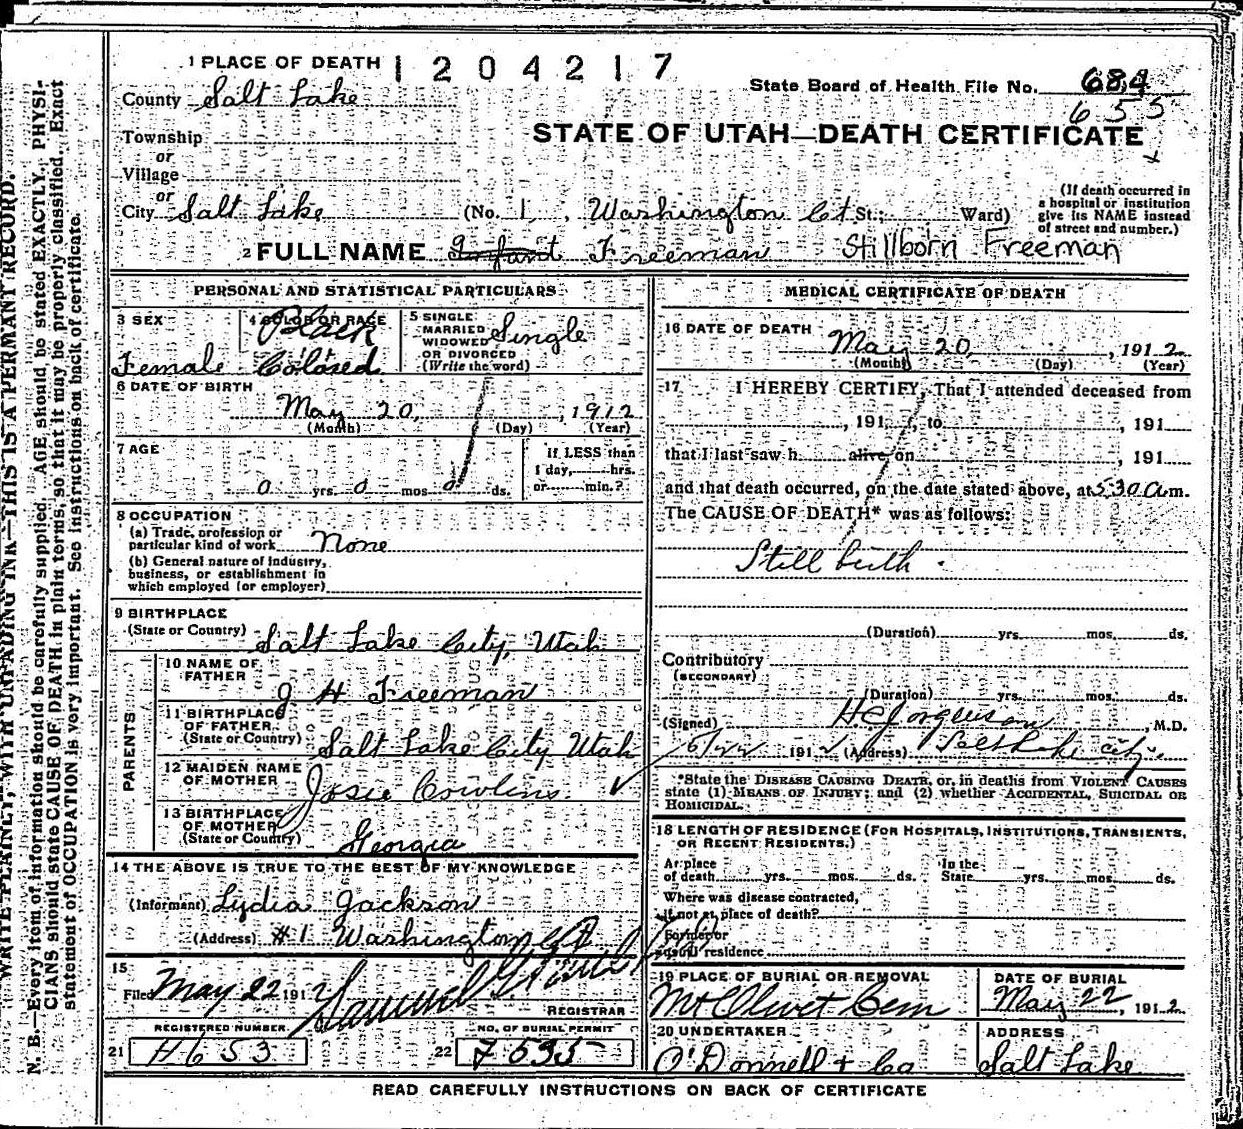 WRITE PLAINLY, WITH UNFADING INK—THIS IS A PERMANT RECORD.
N. B.—Every item of information should be carefully supplied. AGE should be stated EXACTLY. PHYSI-
CIANS should state CAUSE OF DEATH in plain terms, so that it may be properly classified. Exact
statement of OCCUPATION is very important. See instructions on back of certificate.
1 PLACE OF DEATH 1204217
State Board of Health File No. 684
655
County Salt Lake
STATE OF UTAH—DEATH CERTIFICATE
Township
or
Village
or
City Salt Lake (No. 1, Washington Ct St.; Ward)
(If death occurred in
a hospital or institution
give its NAME instead
of street and number.)
2 FULL NAME Infant Freeman Stillborn Freeman
PERSONAL AND STATISTICAL PARTICULARS
3 SEX
Female
4 COLOR OR RACE
Black
Colored
5 SINGLE
MARRIED
WIDOWED
OR DIVORCED
(Write the word)
Single
6 DATE OF BIRTH
May 20, 1912
(Month) (Day) (Year)
7 AGE
0 yrs. 0 mos 0 ds.
If LESS than
1 day, hrs.
or min.?
8 OCCUPATION
(a) Trade, profession or
particular kind of work None
(b) General nature of industry,
business, or establishment in
which employed (or employer)
9 BIRTHPLACE
(State or Country) Salt Lake City, Utah
PARENTS
10 NAME OF
FATHER
J H Freeman
11 BIRTHPLACE
OF FATHER
(State or Country) Salt Lake City Utah
12 MAIDEN NAME
OF MOTHER Josie Cowlins
13 BIRTHPLACE
OF MOTHER
(State or Country) Georgia
14 THE ABOVE IS TRUE TO THE BEST OF MY KNOWLEDGE
(Informant) Lydia Jackson
(Address) #1 Washington Ct
15
Filed May 22 1912 Samuel G.
REGISTRAR
REGISTERED NUMBER
21 H653
NO. OF BURIAL PERMIT
22 7535
MEDICAL CERTIFICATE OF DEATH
16 DATE OF DEATH
May 20, 1912
(Month) (Day) (Year)
17 I HEREBY CERTIFY, That I attended deceased from
, 191 , to , 191
that I last saw h alive on , 191
and that death occurred, on the date stated above, at 530 a.m.
The CAUSE OF DEATH* was as follows:
Still birth.
(Duration) yrs. mos. ds.
Contributory
(SECONDARY)
(Duration) yrs. mos. ds.
(Signed) , M.D.
5/22 1912 (Address) Salt Lake City.
*State the DISEASE CAUSING DEATH, or, in deaths from VIOLENT CAUSES
state (1) MEANS OF INJURY; and (2) whether ACCIDENTAL, SUICIDAL OR
HOMICIDAL.
18 LENGTH OF RESIDENCE (FOR HOSPITALS, INSTITUTIONS, TRANSIENTS,
OR RECENT RESIDENTS.)
At place
of death yrs. mos. ds.
In the
State yrs. mos. ds.
Where was disease contracted,
if not at place of death?
Former or
usual residence
19 PLACE OF BURIAL OR REMOVAL
Mt Olivet Cem
DATE OF BURIAL
May 22, 1912
20 UNDERTAKER
O'Donnell + Co
ADDRESS
Salt Lake
READ CAREFULLY INSTRUCTIONS ON BACK OF CERTIFICATE